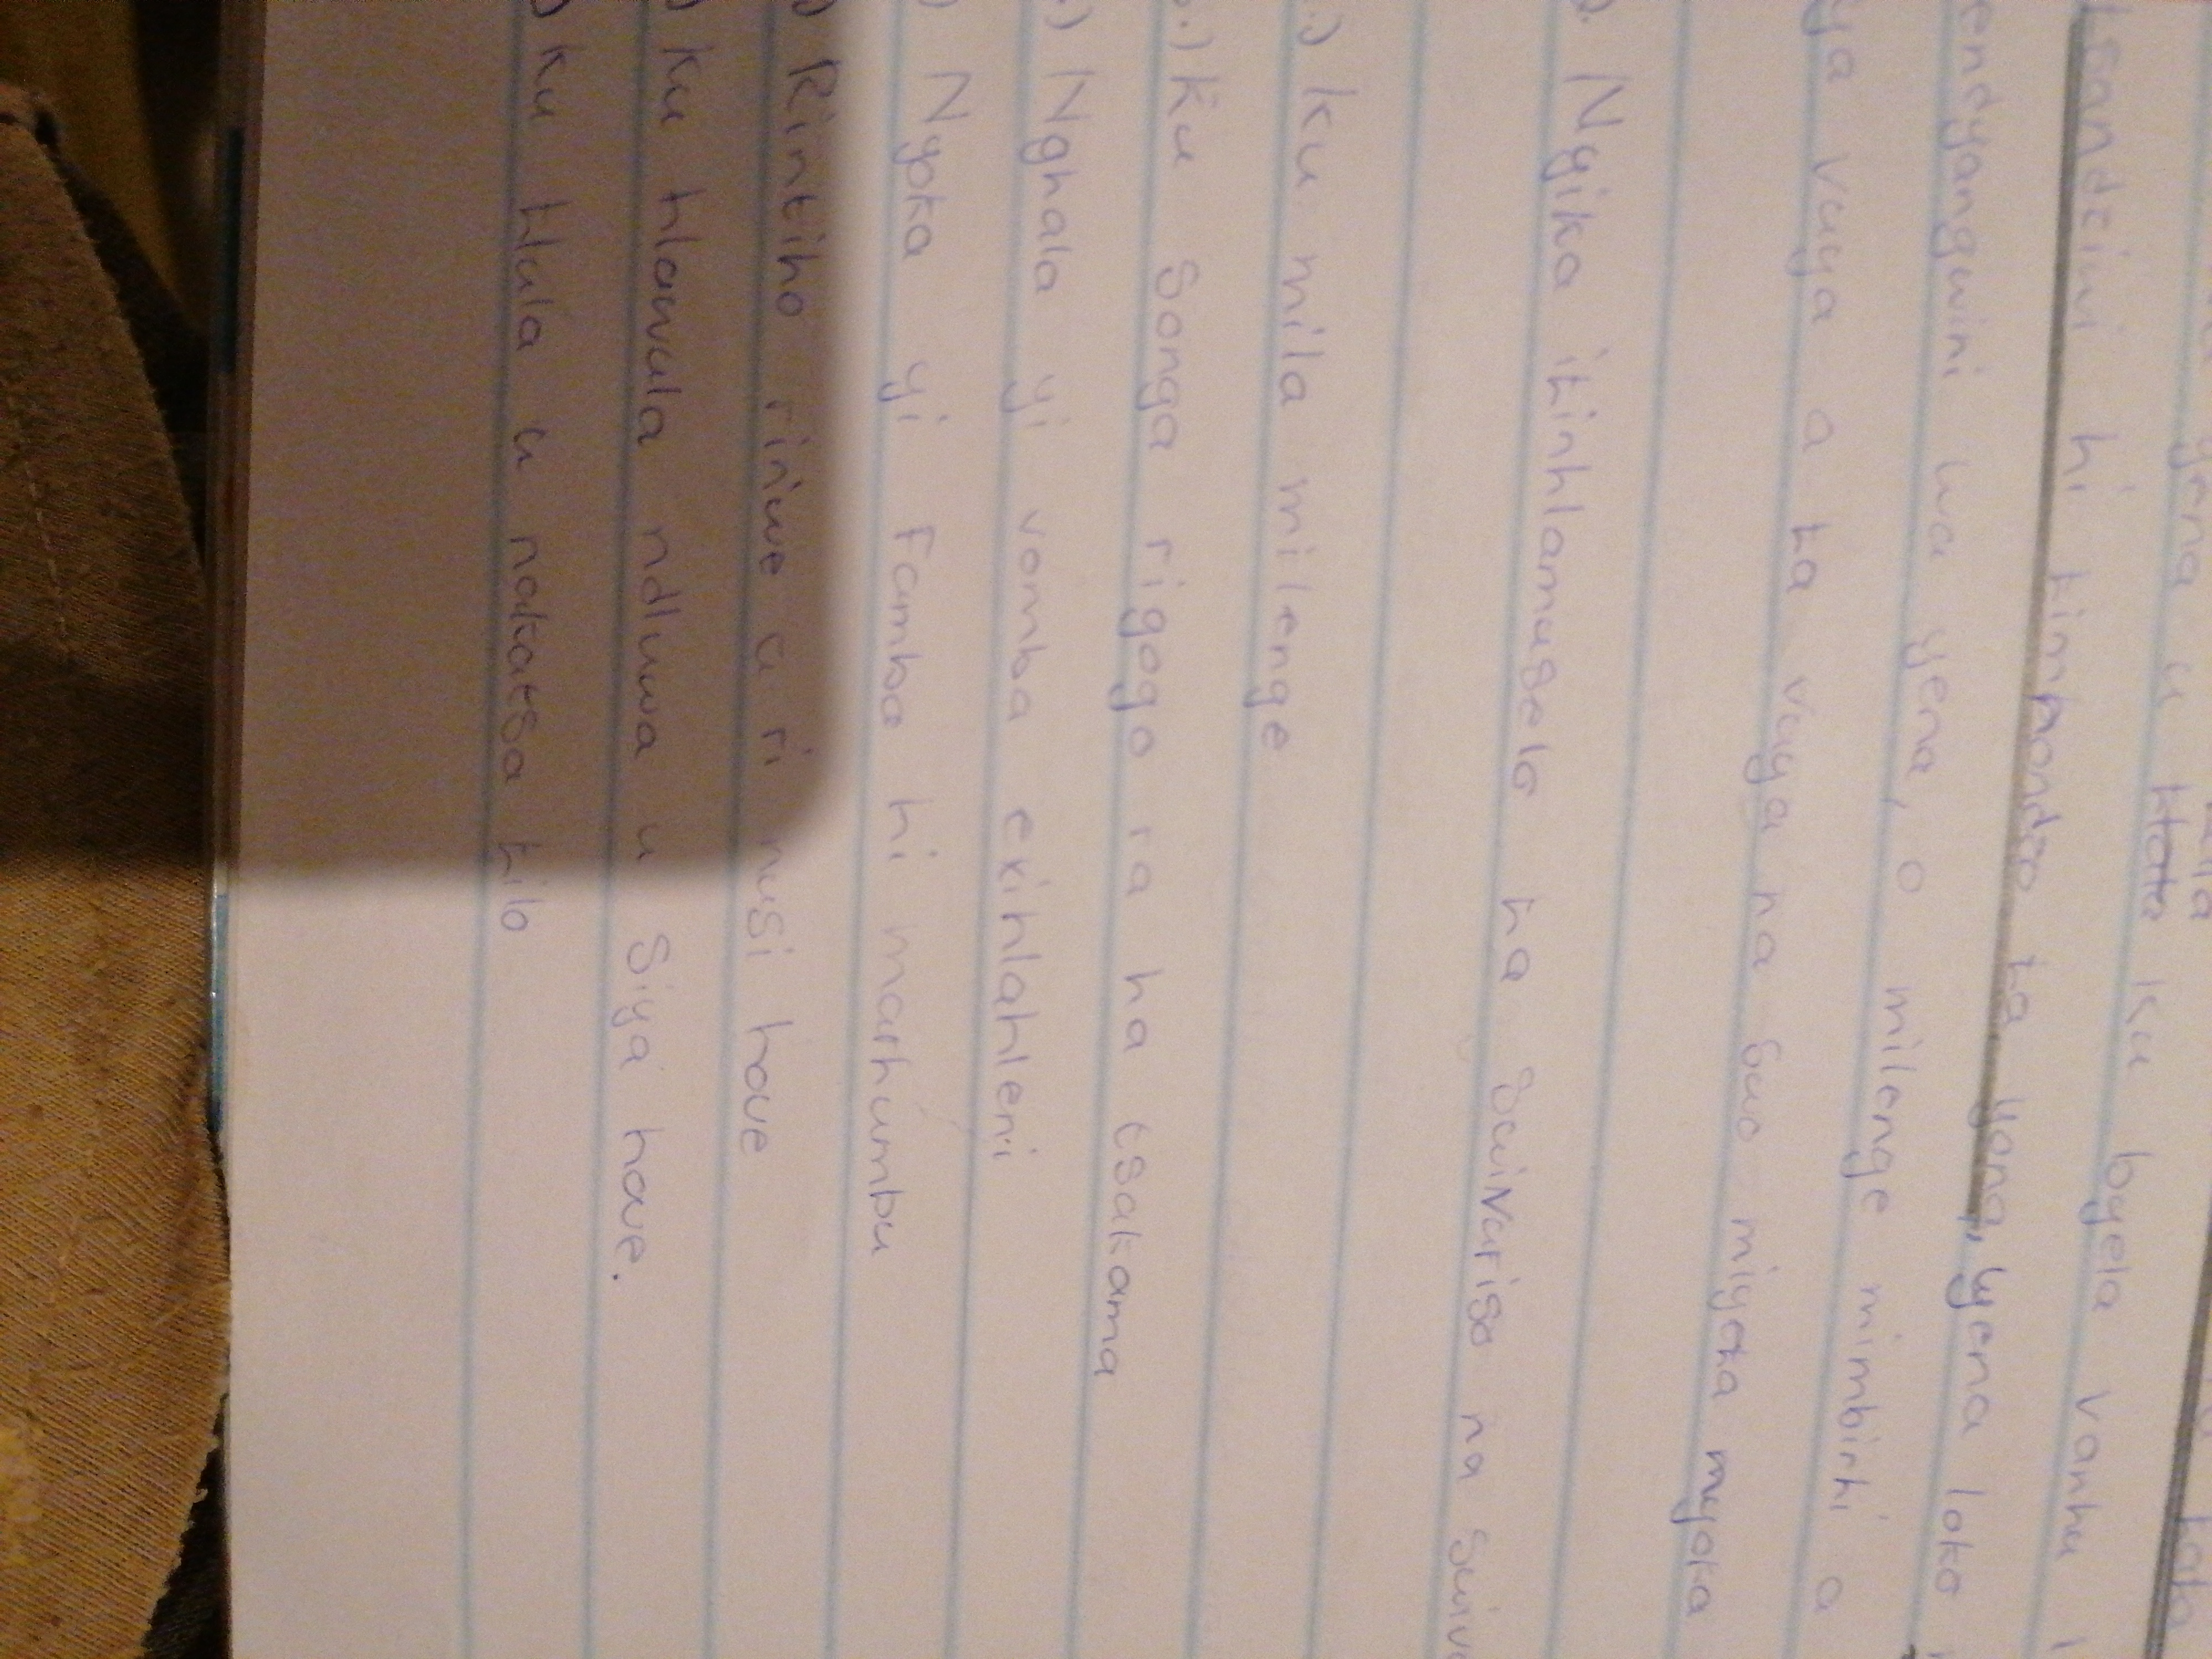 yena u ku byela vanhu
tsandziwi hi timhondzo ta yona, yena loko
endyangwini wa yena, o milenge mimbirhi a
ya vuya a ta vuya na swo miyeta myoka
Nyika tinhlamuselo ta swivuriso na
.) ku mila milenge
.) Ku songa rigogo ra ha tsakama
.) Nghala yi vomba exihlahleni
) Nyoka yi famba hi marhumbu
) Rintiho rin'we a ri nusi hove
) Ku hlawula ndluwa u siya hove.
) Ku hlula u nakatsa tilo